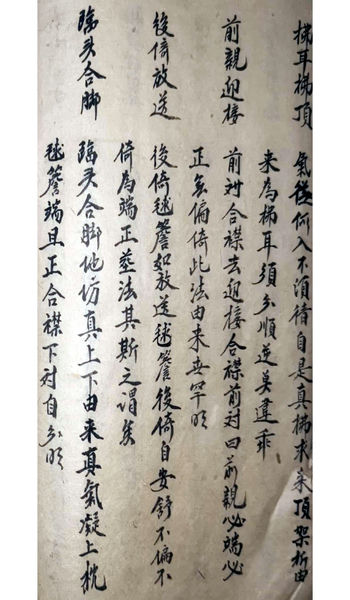 梯耳梯頂 氣從何入不須猜自是真梯求來頂架折由
來為梯耳須分順逆莫違乖
前親迎接 前對合襟去迎接合襟前對曰前親必端必
正無偏倚此法由來世罕明
後倚放送 後倚毬簷如放送毬簷後倚自安舒不偏不
倚為端正塟法其斯之謂矣
臨头合脚 臨头合脚他仿真上下由來真氣凝上枕
毬簷端且正合襟下对自分明